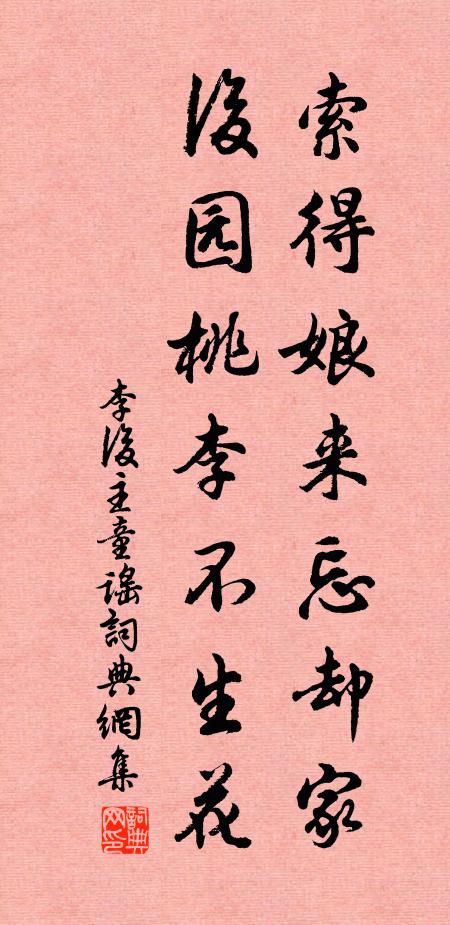 索得娘来忘却家
後园桃李不生花
李後主童谣詞典網集
詞典
网印